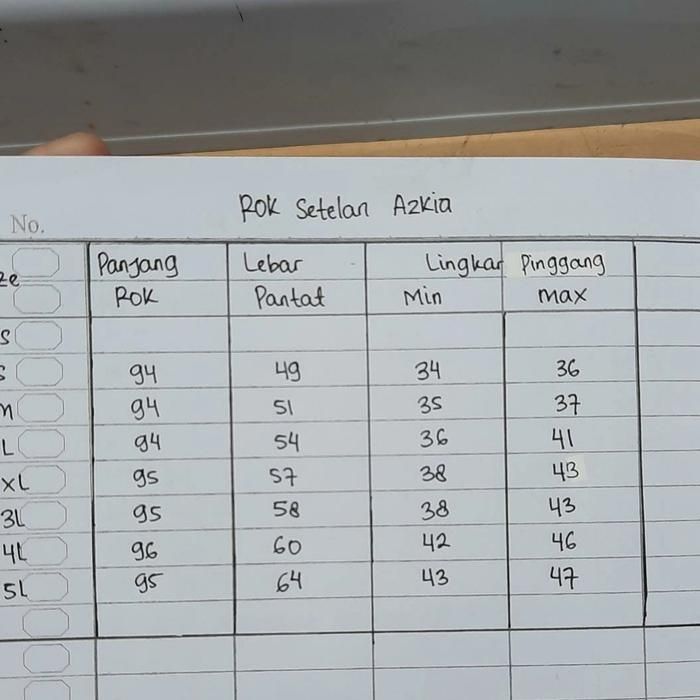 No.
Rok Setelan Azkia
ze Panjang Lebar Lingkar Pinggang
Rok Pantat Min max
S
S 94 49 34 36
M 94 51 35 37
L 94 54 36 41
XL 95 57 38 43
3L 95 58 38 43
4L 96 60 42 46
5L 95 64 43 47